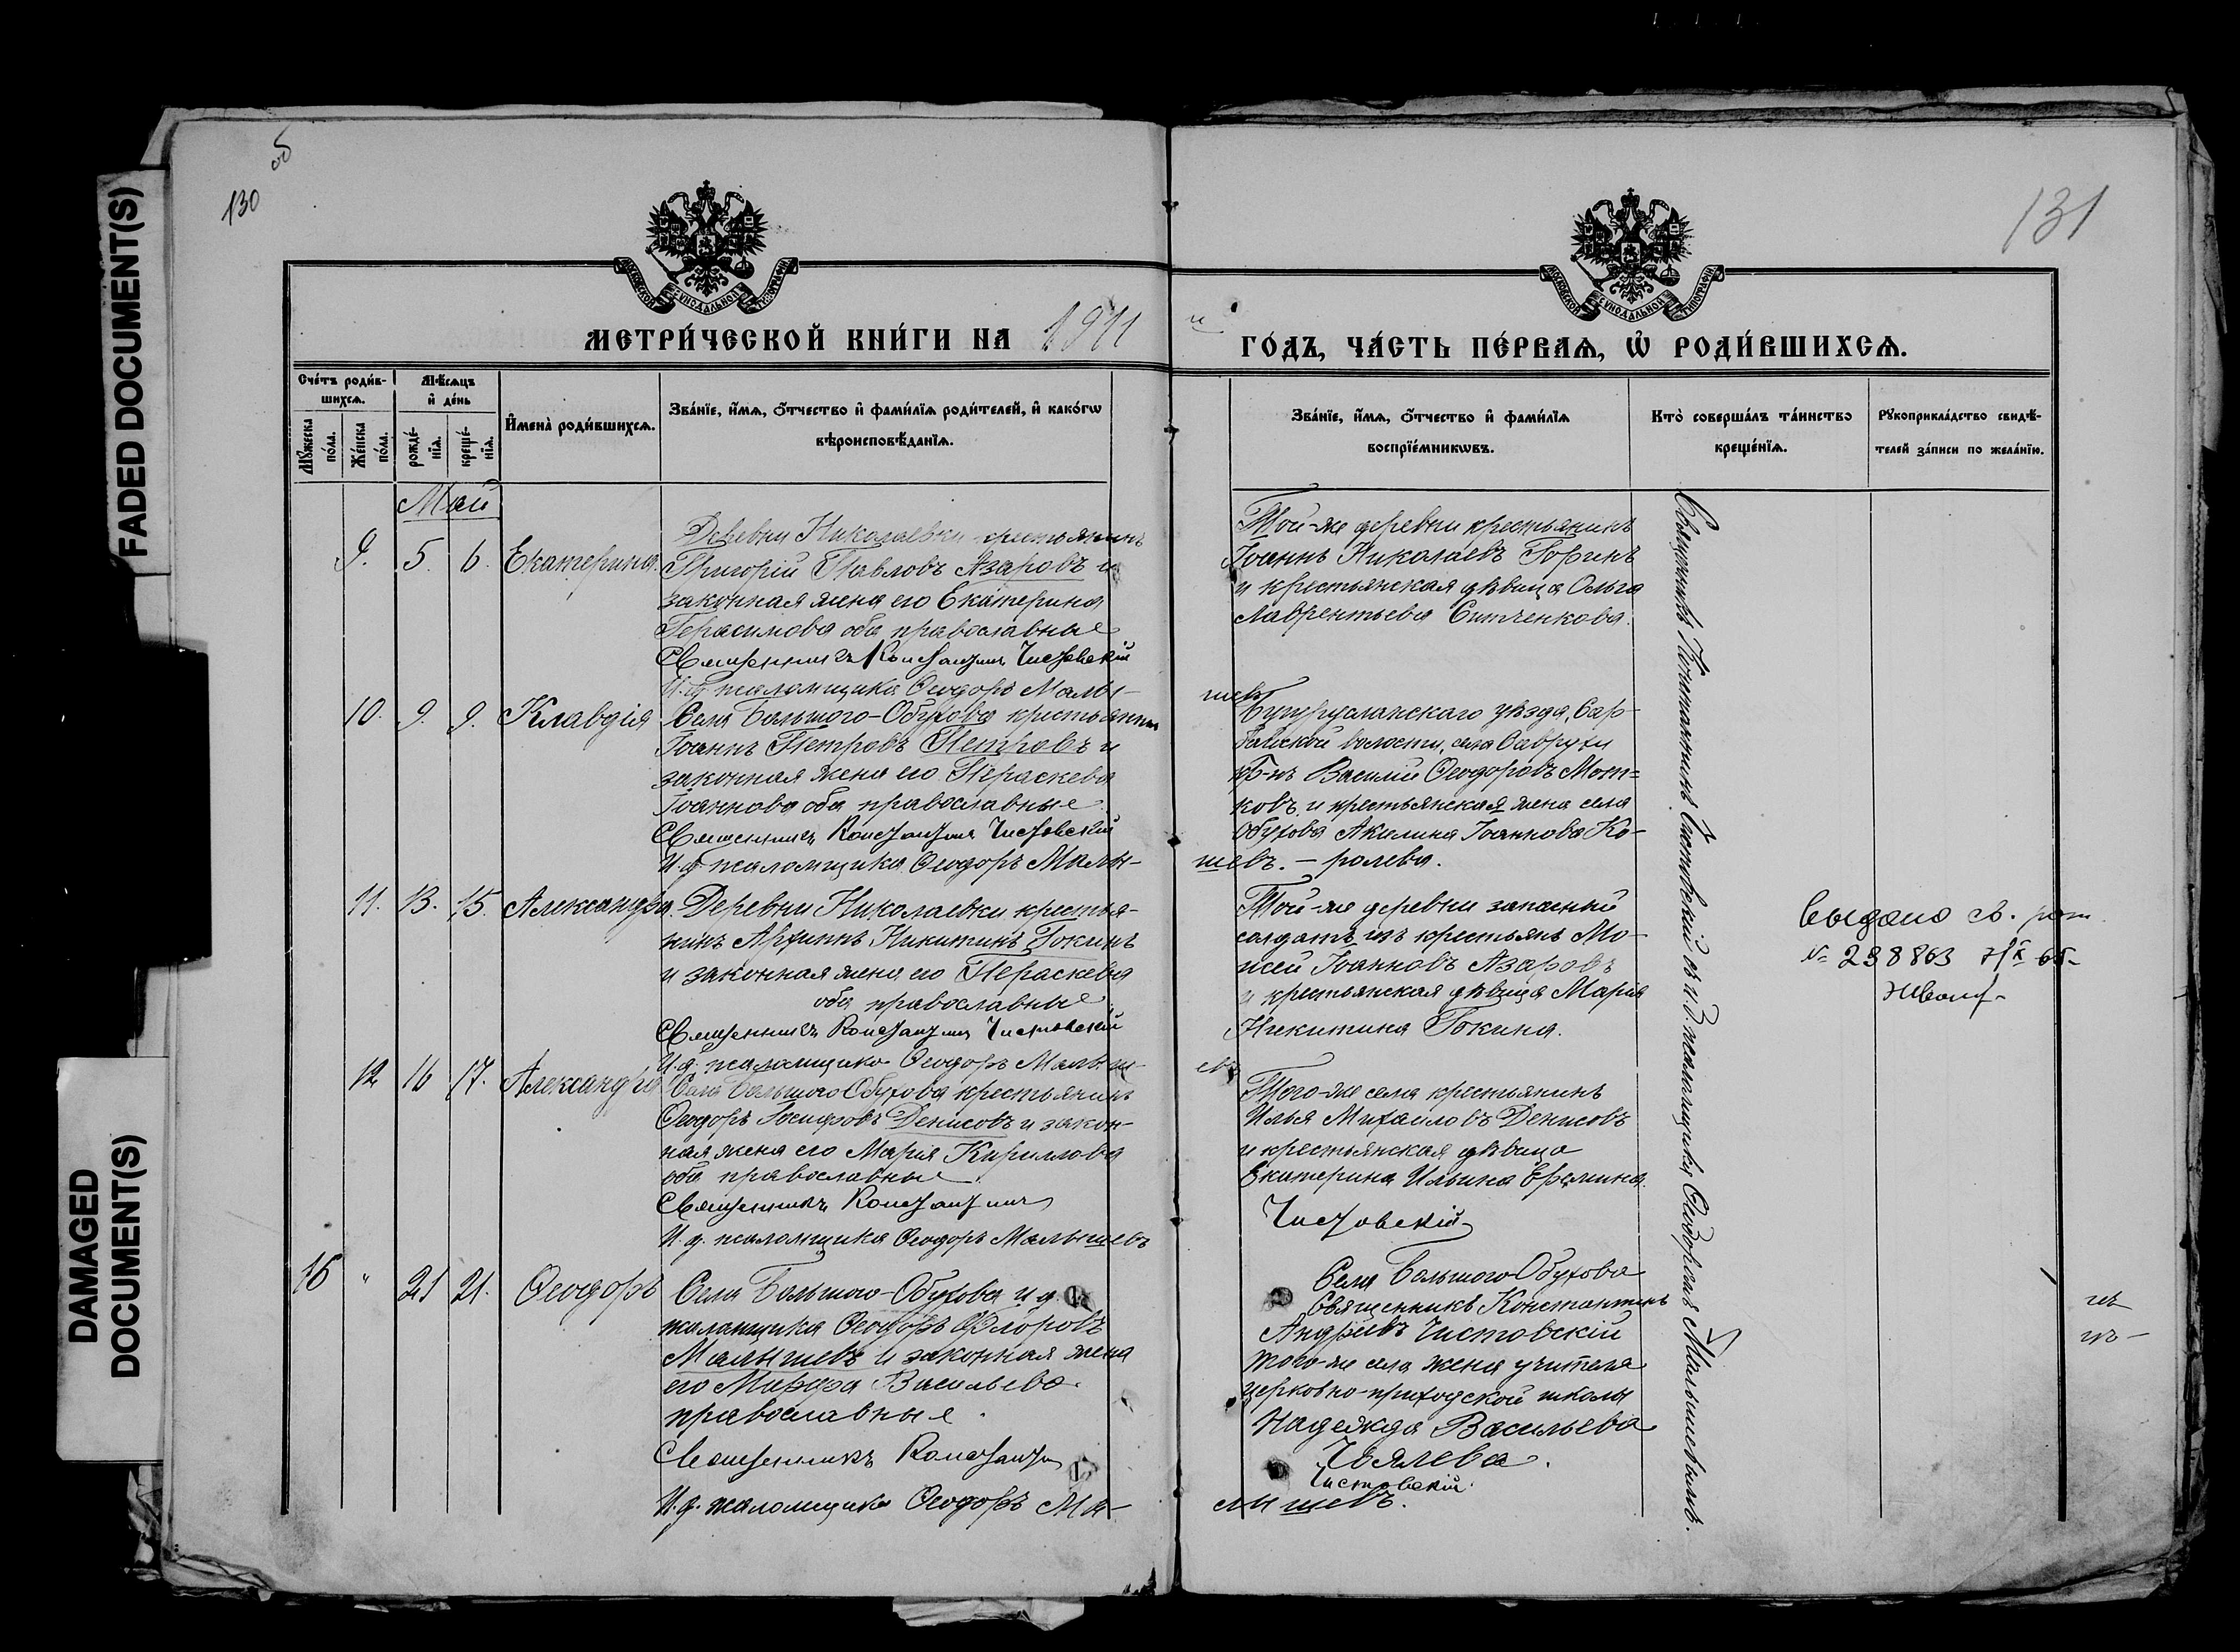 FADED DOCUMENT(S)
DAMAGED
DOCUMENT(S)
130
об
131
МОСКОВСКОЙ СѴНОДАЛЬНОЙ ТИПОГРАФІИ
МОСКОВСКОЙ СѴНОДАЛЬНОЙ ТИПОГРАФІИ
МЕТРИ́ЧЕСКОЙ КНИ́ГИ НА 1911
ГО́ДЪ, ЧА́СТЬ ПЕ́РВАѦ, Ѽ РОДИ́ВШИХСѦ.
Сче́тъ роди́в-
шихсѧ.
Мꙋ́жеска
по́ла.
Же́нска
по́ла.
Мѣ́сѧцъ
и҆ де́нь
рожде́-
нїѧ.
креще́-
нїѧ.
И҆мена̀ роди́вшихсѧ.
Зва́нїе, и҆́мѧ, ѻ҆́тчество и҆ фами́лїѧ роди́телей, и҆ како́гѡ
вѣроисповѣ́данїѧ.
Зва́нїе, и҆́мѧ, ѻ҆́тчество и҆ фами́лїѧ
воспрїе́мникѡвъ.
Кто̀ соверша́лъ та́инство
креще́нїѧ.
Рꙋкоприкла́дство свидѣ́-
телей за́писи по жела́нїю.
Май
9. 5. 6. Екатерина.
Деревни Николаевки крестьянинъ
Григорій Павловъ Азаровъ и
законная жена его Екатерина
Герасимова оба православные
Священникъ Константинъ Чистовскій
И. д. псаломщика Ѳеодоръ Малы-
шевъ
Той-же деревни крестьянинъ
Іоаннъ Николаевъ
и крестьянская дѣвица Ольга
Лаврентьева Ситченкова.
10. 9. 9. Клавдія
Села Большого-Обухова крестьянинъ
Іоаннъ Петровъ Петровъ и
законная жена его Параскева
Іоаннова оба православные.
Священникъ Константинъ Чистовскій
И. д. псаломщика Ѳеодоръ Малы-
шевъ.
Бугурусланскаго уѣзда, Сар-
байской волости, села Саврухи
кр-нъ Василій Ѳеодоровъ Мот-
ковъ и крестьянская жена села
Обухова Акилина Іоаннова Ко-
ролева.
11. 13. 15. Александра.
Деревни Николаевки крестья-
нинъ Архипъ Никитинъ Гокинъ
и законная жена его Параскева
оба православные
Священникъ Константинъ Чистовскій
И. д. псаломщика Ѳеодоръ Малыш-
евъ
Той-же деревни запасный
солдатъ изъ крестьянъ Мо-
исей Іоанновъ Азаровъ
и крестьянская дѣвица Марія
Никитина Гокина.
выдано св.
№ 238863 7/X 65
12 16 17. Александра
Села Большого Обухова крестьянинъ
Ѳеодоръ Іосифовъ Денисовъ и закон-
ная жена его Марія Кириллова
оба православные.
Священникъ Константинъ
Чистовскій
И. д. псаломщика Ѳеодоръ Малышевъ
Того-же села крестьянинъ
Илья Михайловъ Денисовъ
и крестьянская дѣвица
Екатерина Ильина Еремина.
16 " 21 21. Ѳеодоръ
Села Большого-Обухова и. д.
псаломщика Ѳеодоръ Флоровъ
Малышевъ и законная жена
его Марѳа Васильева.
православные.
Священникъ Константинъ
Чистовскій.
И. д. псаломщика Ѳеодоръ Ма-
лышевъ.
Села Большого Обухова
Священникъ Константинъ
Андреевъ Чистовскій
того-же села жена учителя
церковно-приходской школы
Надежда Васильева
Священникъ Константинъ Чистовскій съ и. д. псаломщика Ѳеодоромъ Малышевымъ.